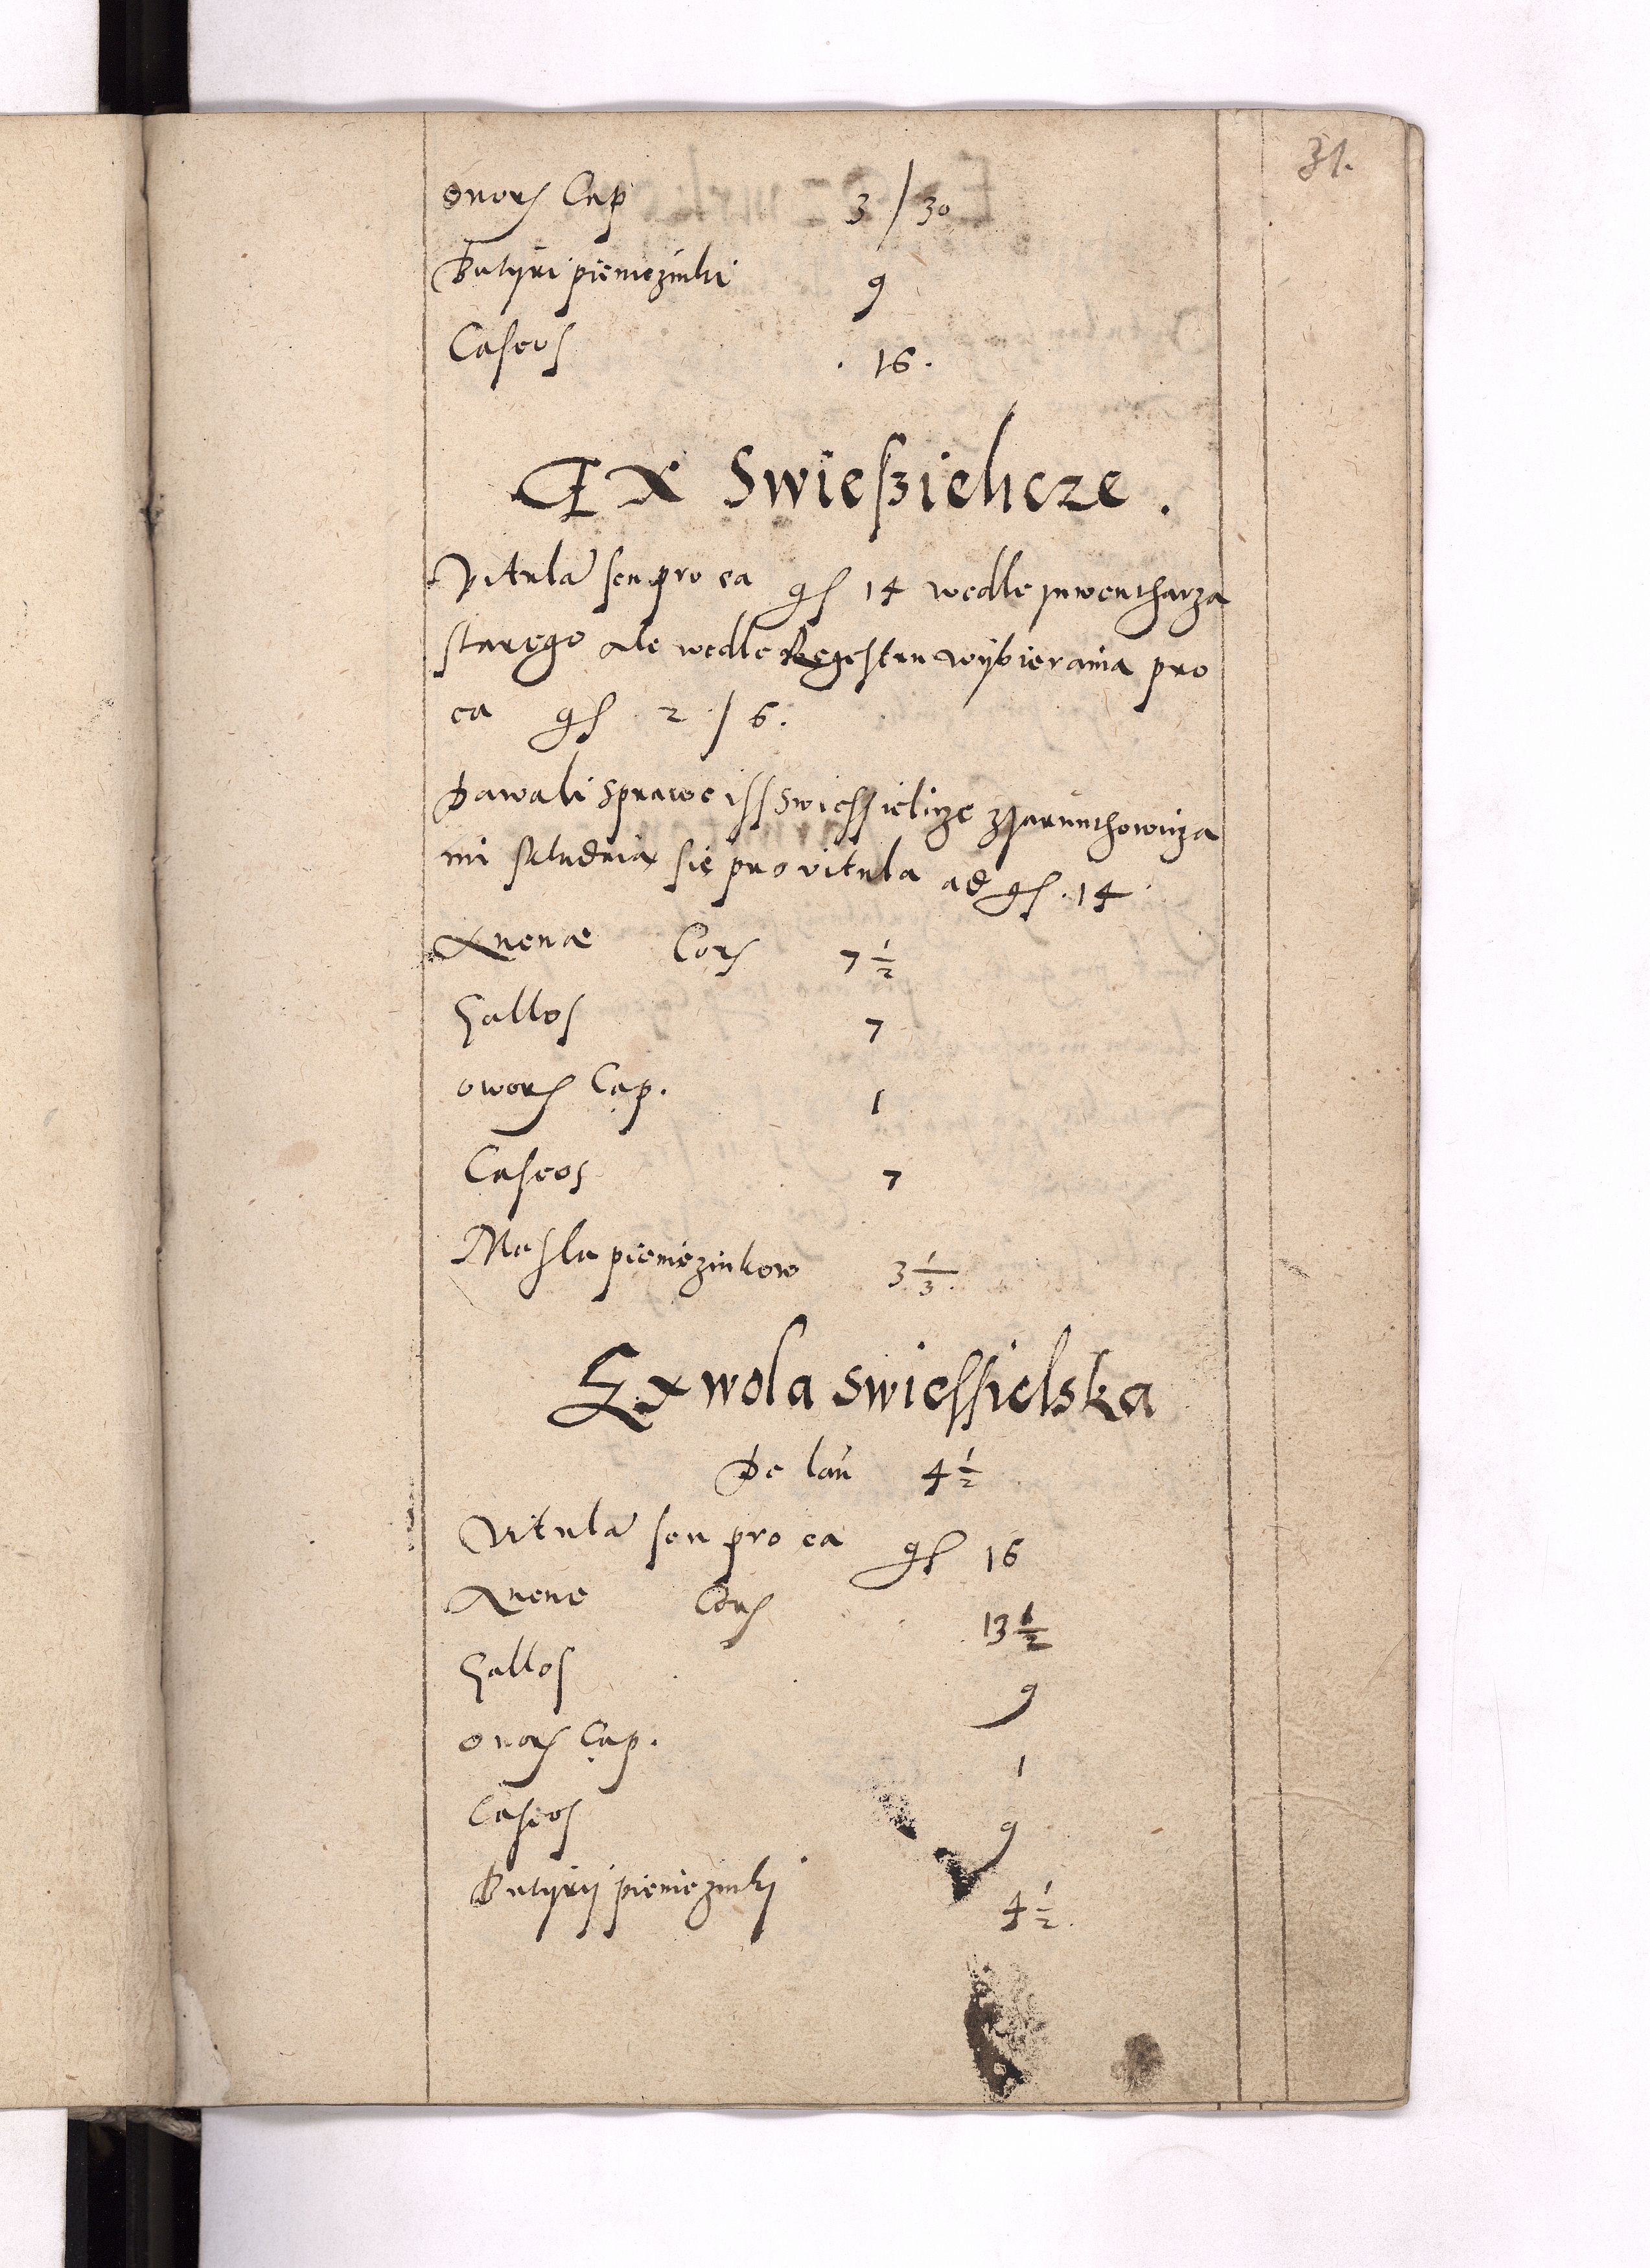 31.
ovorꝭ Cap 3 / 30
Butÿri pieniezinki 9
Caseos . 16 .
Ex Swießielicze .
Vitula seu pro ea gß 14 wedle ynwentharza
starego ale wedle Regestru wÿbierania pro
ea gß 2 / 6 .
Dawali Sprawe iss Swiessielicze z Jarunthowicza
mi skladaia sie pro vitula ad gß . 14
Auenae Corꝭ 7 1/2
Gallos 7
oworꝭ Cap . 1
Caseos 7
Masla pieniezinkow 3 1/3 .
Ex wola swiessielska
De lan 4 1/2
Vitula seu pro ea gß 16
Auene Corꝭ 13 1/2
Gallos 9
ovorꝭ Cap . 1
Caseos 9
Butÿrÿ pieniezinki 4 1/2 .